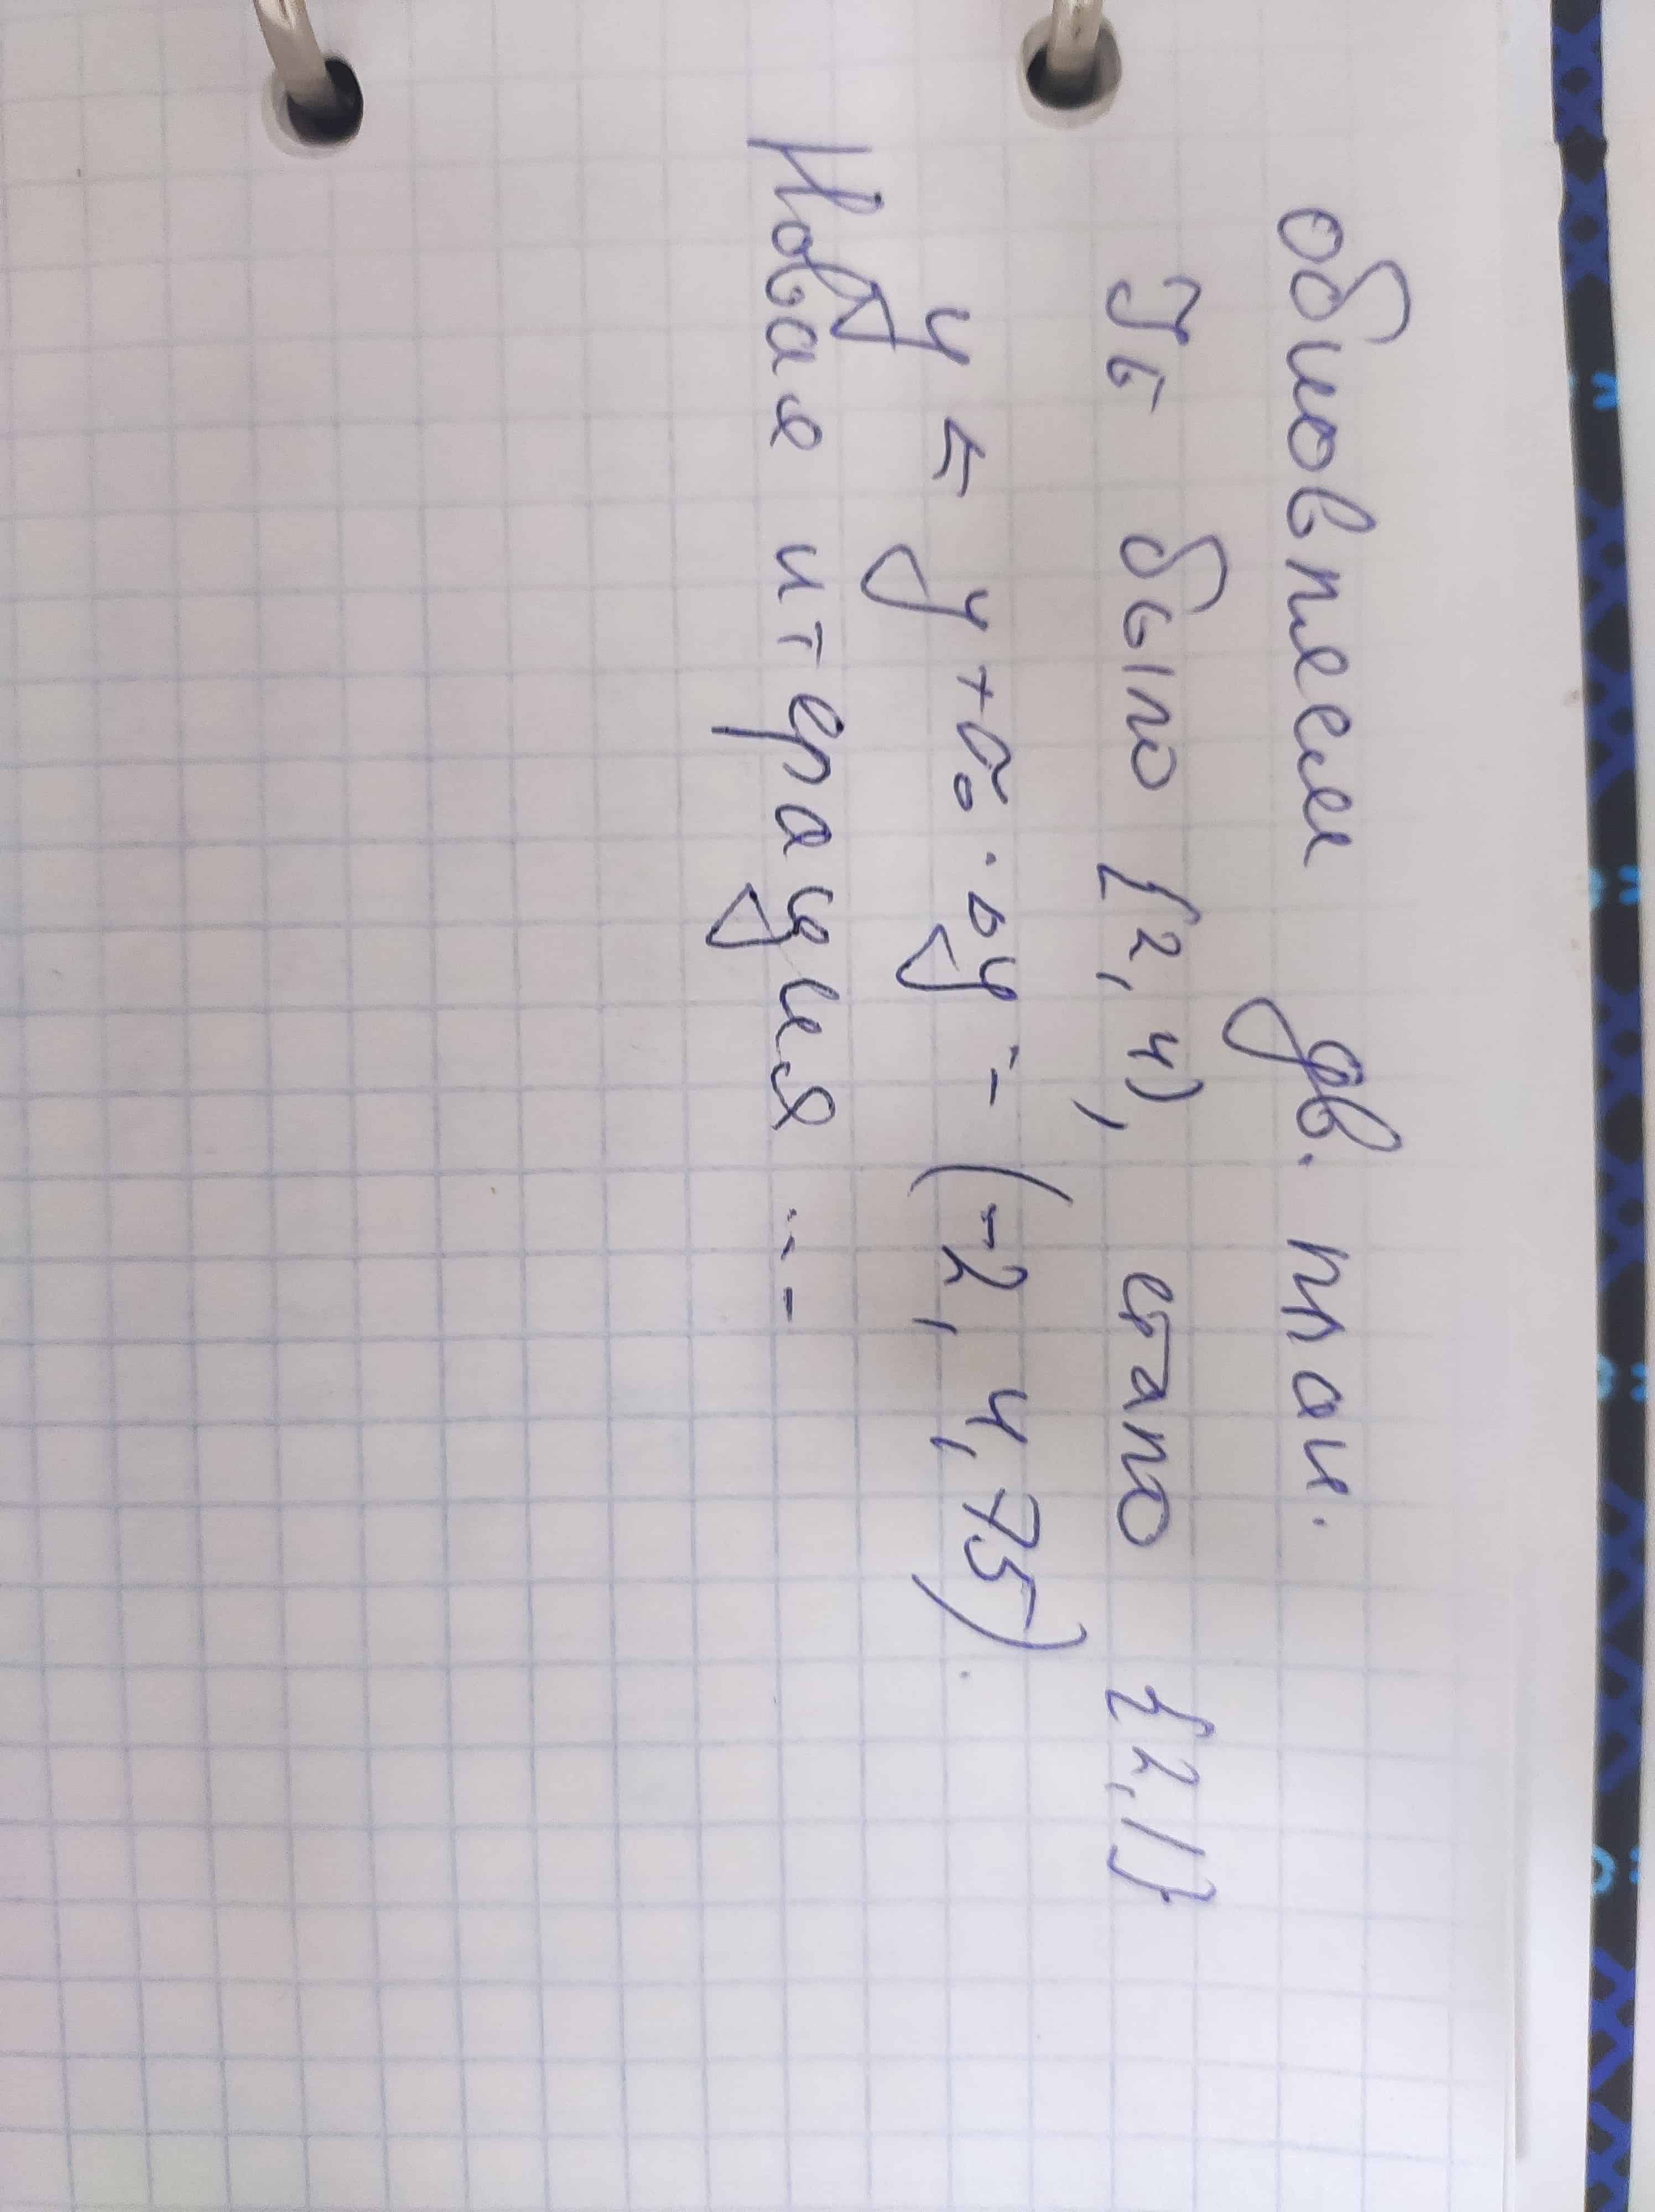 обновляем дв. план.
Jб было {2, 4}, стало {2, 1}
y ← y + σ₀ · Δy = (-2, 4,75).
Новая итерация ...